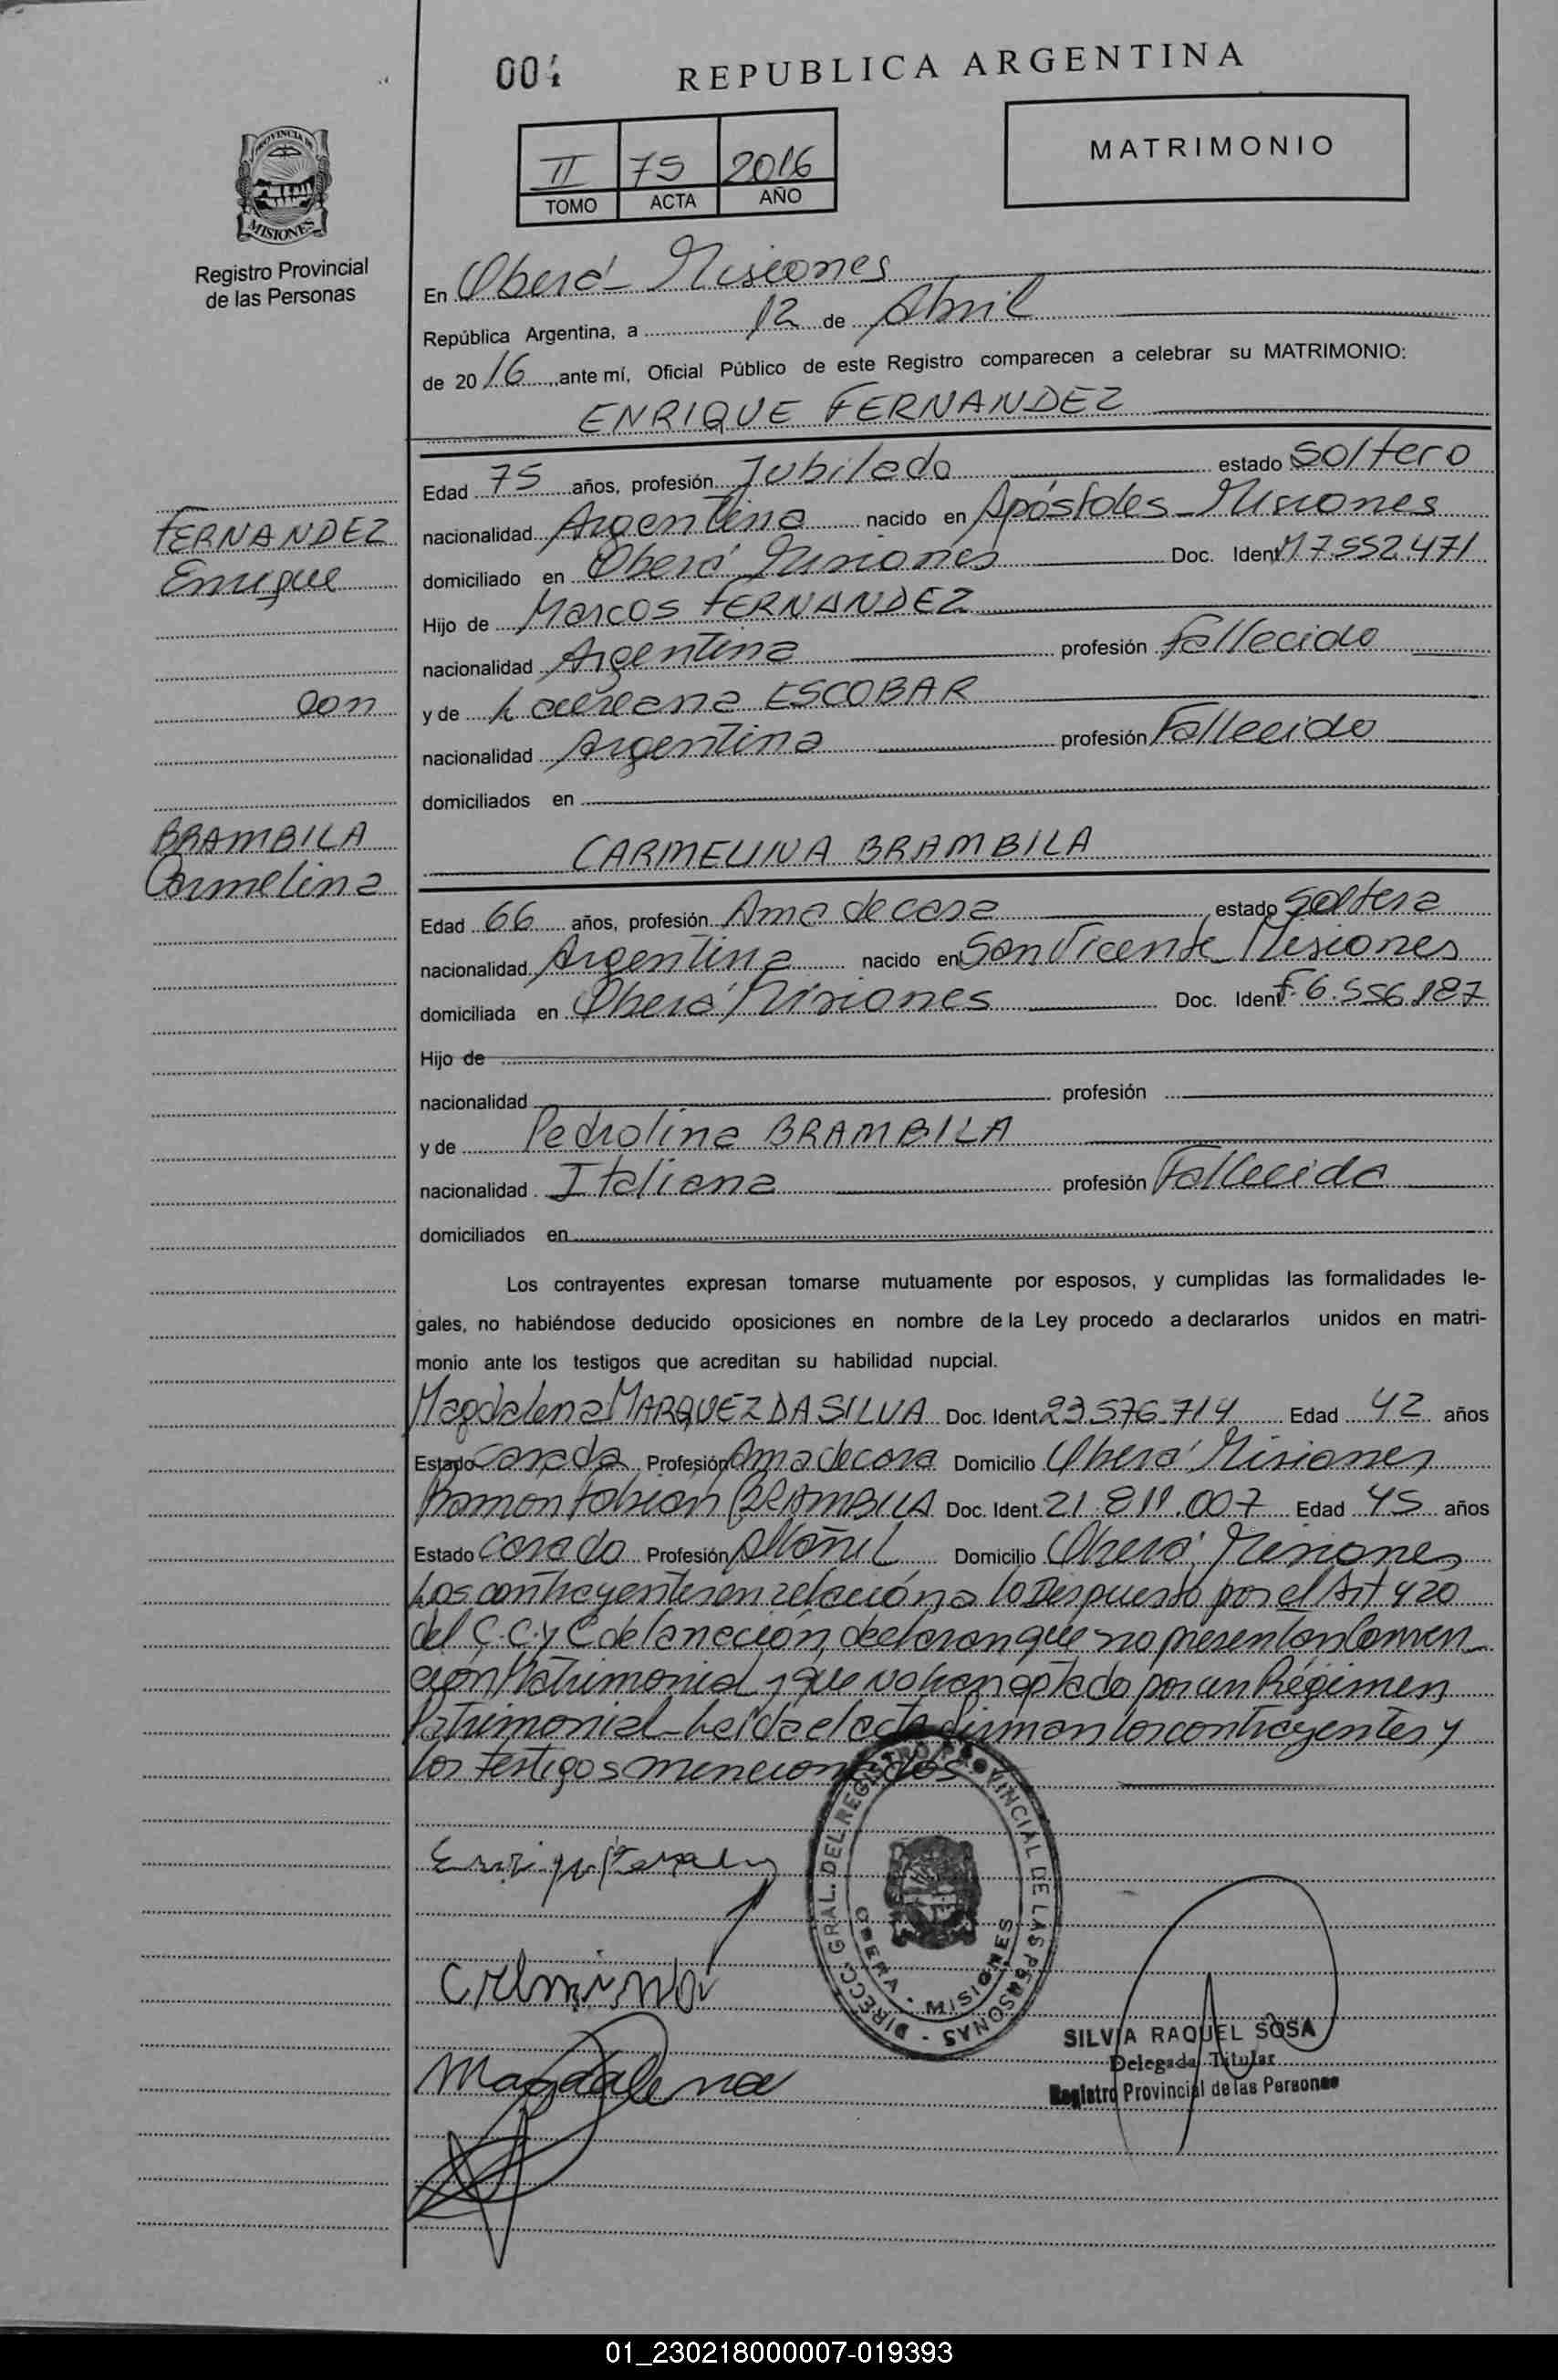 004
REPUBLICA ARGENTINA
II 75 2016
TOMO ACTA AÑO
MATRIMONIO
PROVINCIA DE
MISIONES
Registro Provincial
de las Personas
En Oberá - Misiones
República Argentina, a 12 de Abril
de 20 16 ante mí, Oficial Público de este Registro comparecen a celebrar su MATRIMONIO:
ENRIQUE FERNANDEZ
Edad 75 años, profesión Jubilado estado Soltero
FERNANDEZ
nacionalidad Argentina nacido en Apóstoles - Misiones
Enrique
domiciliado en Oberá Misiones Doc. Ident M 7.552.471
Hijo de Marcos FERNANDEZ
nacionalidad Argentina profesión fallecido
con
y de Laureana ESCOBAR
nacionalidad Argentina profesión Fallecido
domiciliados en
BRAMBILA
CARMELINA BRAMBILA
Carmelina
Edad 66 años, profesión Ama de casa estado Soltera
nacionalidad Argentina nacido en San Vicente - Misiones
domiciliada en Oberá Misiones Doc. Ident F. 6.556.187
Hijo de
nacionalidad profesión
y de Pedrolina BRAMBILA
nacionalidad Italiana profesión Fallecida
domiciliados en
Los contrayentes expresan tomarse mutuamente por esposos, y cumplidas las formalidades le-
gales, no habiéndose deducido oposiciones en nombre de la Ley procedo a declararlos unidos en matri-
monio ante los testigos que acreditan su habilidad nupcial.
Magdalena MARQUEZ DA SILVA Doc. Ident 23.576.714 Edad 42 años
Estado Casada Profesión Ama de casa Domicilio Oberá, Misiones
Ramon Fabian BRAMBILA Doc. Ident 21.811.007 Edad 45 años
Estado Casado Profesión Albañil Domicilio Oberá, Misiones
Los contrayentes en relación a lo Dispuesto por el Art 420
del C.C. y C de la nación, declaran que no presentan Conven-
ción Matrimonial y que no han optado por un Régimen
Patrimonial - Leída el acta firman los contrayentes y
los testigos mencionados
DIRECC. GRAL. DEL REGISTRO PROVINCIAL DE LAS PERSONAS
OBERA - MISIONES
Magdalena
SILVIA RAQUEL SOSA
Delegada Titular
Registro Provincial de las Personas
01_230218000007-019393